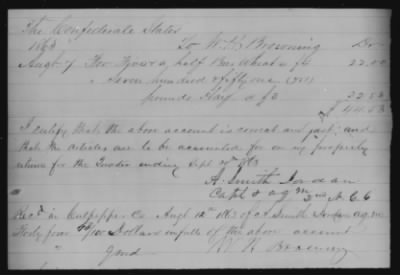 The Confederate States
1863 To W. H. Browning Dr
Augt 7 For Five & a half Bus Wheat @ $4 22.00
" Seven hundred & fifty one (751)
pounds Hay @ $3 22.53
$44.53
I certify that the above account is correct and just; and
that the articles are to be accounted for on my property
return for the Quarter ending Sept 30th 1863
A. Smith Jordan
Capt & aqm 2nd N.C.C
Recd in Culpepper Co Augt 12th 1863 of A Smith Jordan aqm
Forty four 53/100 Dollars in full of the above account
W. H. Browning